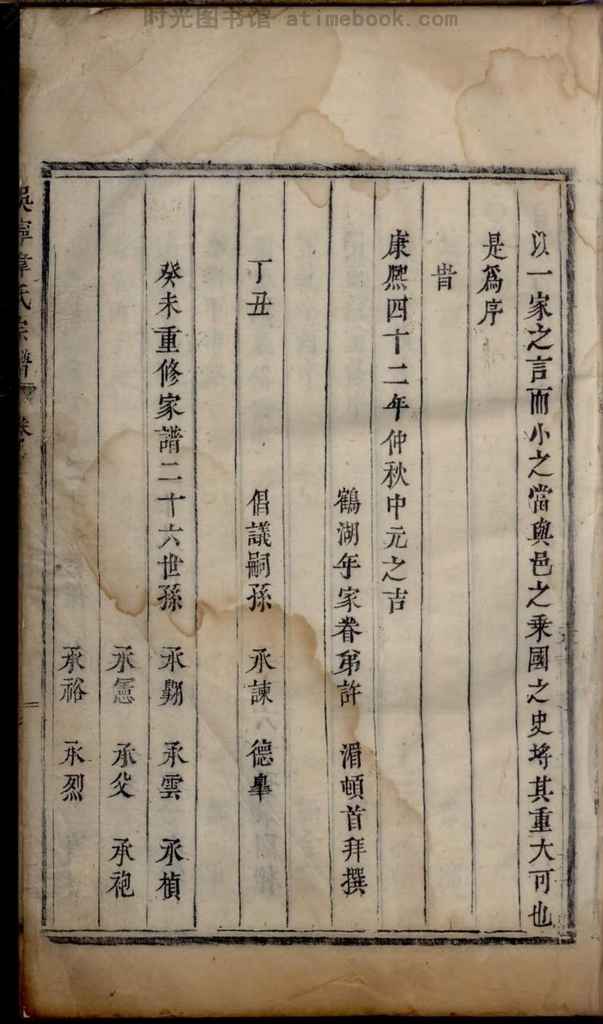 时光图书馆 - atimebook.com
以一家之言而小之當與邑之乘國之史埓其重大可也
是爲序
旹
康熙四十二年仲秋中元之吉
鶴湖年家眷弟許 湄頓首拜撰
丁丑 倡議嗣孫 承諫 德臯
癸未重修家譜二十六世孫 承勷 承雲 承楨
承憲 承 承袍
承裕 承烈
氏宗譜 卷